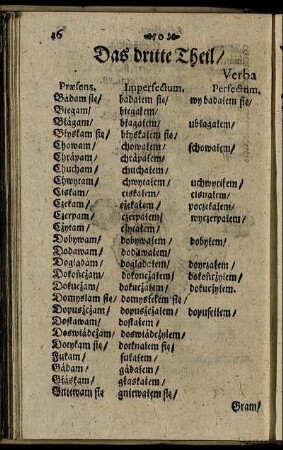 16 ❧o☙
Das dritte Theil/
Verba
Præsens. Imperfectum. Perfectum.
Bádam się/ badałem się/ wybadałem się/
Biegam/ biegałem/
Błágam/ błagałem/ ubłagałem/
Błyskam się/ błyskałem się/
Chowam/ chowałem/ schowałem/
Chrápam/ chrápałem/
Chucham/ chuchałem/
Chwytam/ chwytałem/ uchwyciłem/
Ciskam/ ciskałem/ cisnałem/
Czekam/ czekałem/ poczekałem/
Czerpam/ czerpałem/ wyczerpałem/
Czytam/ czytałem/
Dobywam/ dobywałem/ dobyłem/
Dodawam/ dodawałem/
Doglądam/ doglądałem/ doyrzałem/
Dokończam/ dokonczałem/ dokończyłem/
Dokuczam/ dokuczałem/ dokuczyłem.
Domyslam się/ domyslełem się/
Dopuszczam/ dopuszczałem/ dopuściłem/
Dostawam/ dostałem/
Doswiádczam/ doswiádczyłem/
Dotykam się/ dotknałem się/
Fukam/ fukałem/
Gádam/ gádałem/
Głáskam/ głaskałem/
Gniewam się/ gniewałem się/
Gram/